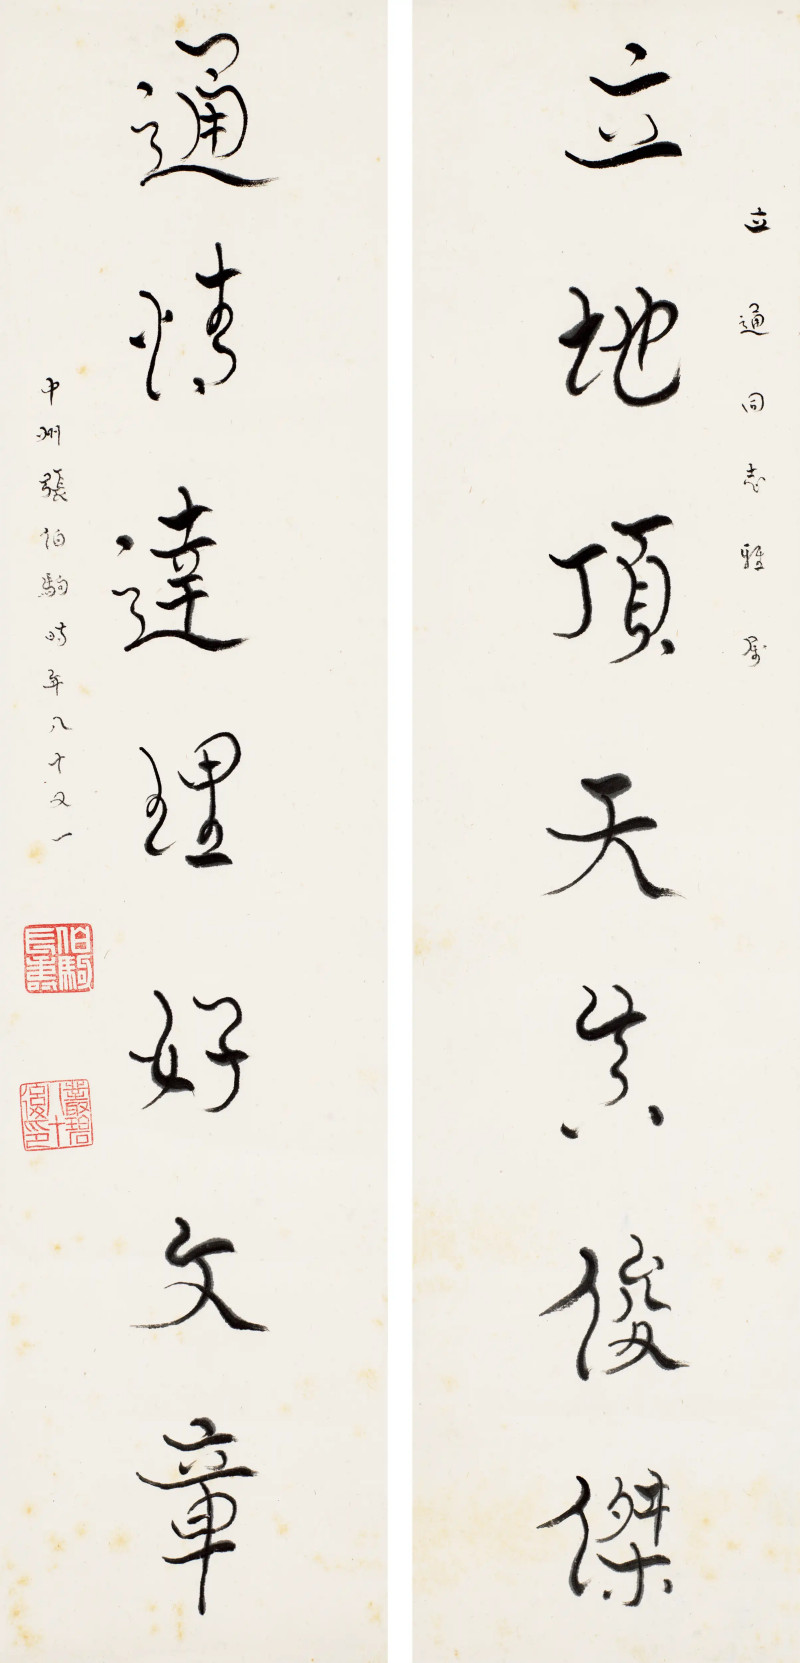 立通同志雅属
立地頂天真俊傑
通情達理好文章
中州張伯駒時年八十又一
伯駒長壽
叢碧八十後印